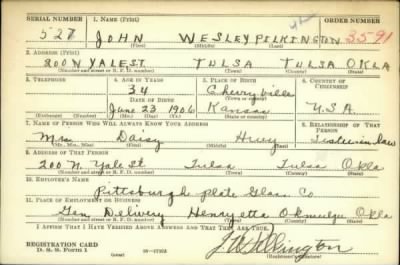 SERIAL NUMBER 1. NAME (Print) ORDER NUMBER
527 JOHN WESLEY PILKINGTON 3591
(First) (Middle) (Last)
2. ADDRESS (Print)
200 N YALE ST. TULSA TULSA OKLA
(Number and street or R. F. D. number) (Town) (County) (State)
3. TELEPHONE 4. AGE IN YEARS 5. PLACE OF BIRTH 6. COUNTRY OF CITIZENSHIP
34 Cherryville
DATE OF BIRTH
June 23 1906 Kansas U.S.A.
(Mo.) (Day) (Yr.) (State or country)
7. NAME OF PERSON WHO WILL ALWAYS KNOW YOUR ADDRESS 8. RELATIONSHIP OF THAT PERSON
Mrs Daisy Huey Sister in law
(Mr., Mrs., Miss) (First) (Middle) (Last)
9. ADDRESS OF THAT PERSON
200 N. Yale St Tulsa Tulsa Okla
(Number and street or R. F. D. number) (Town) (County) (State)
10. EMPLOYER'S NAME
Pittsburgh plate Glass Co
11. PLACE OF EMPLOYMENT OR BUSINESS
Gen Delivery Henryetta Okmulgee Okla
(Number and street or R. F. D. number) (Town) (County) (State)
I AFFIRM THAT I HAVE VERIFIED ABOVE ANSWERS AND THAT THEY ARE TRUE.
REGISTRATION CARD
D. S. S. Form 1 (over)
(Registrant's signature)